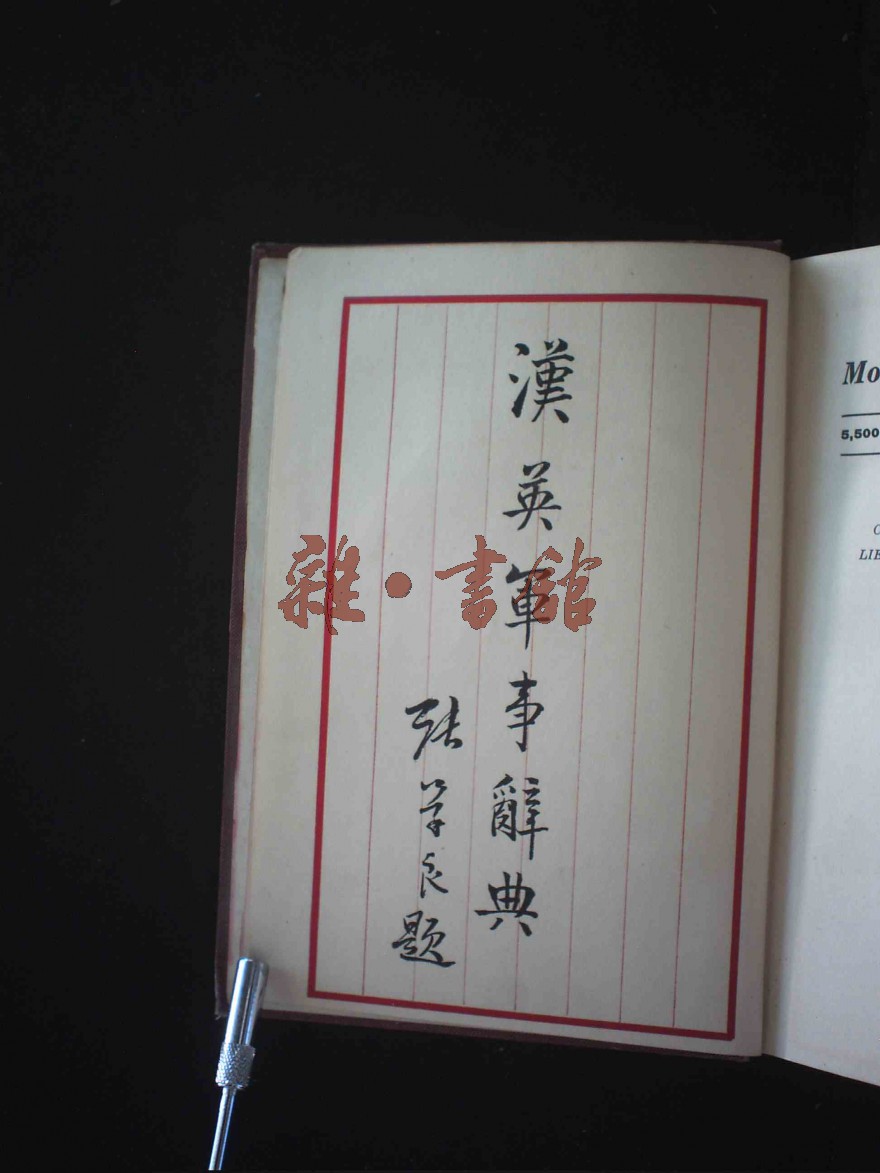 漢英軍事辭典
張学良題
雜·書館
Mo
5,500
LIE